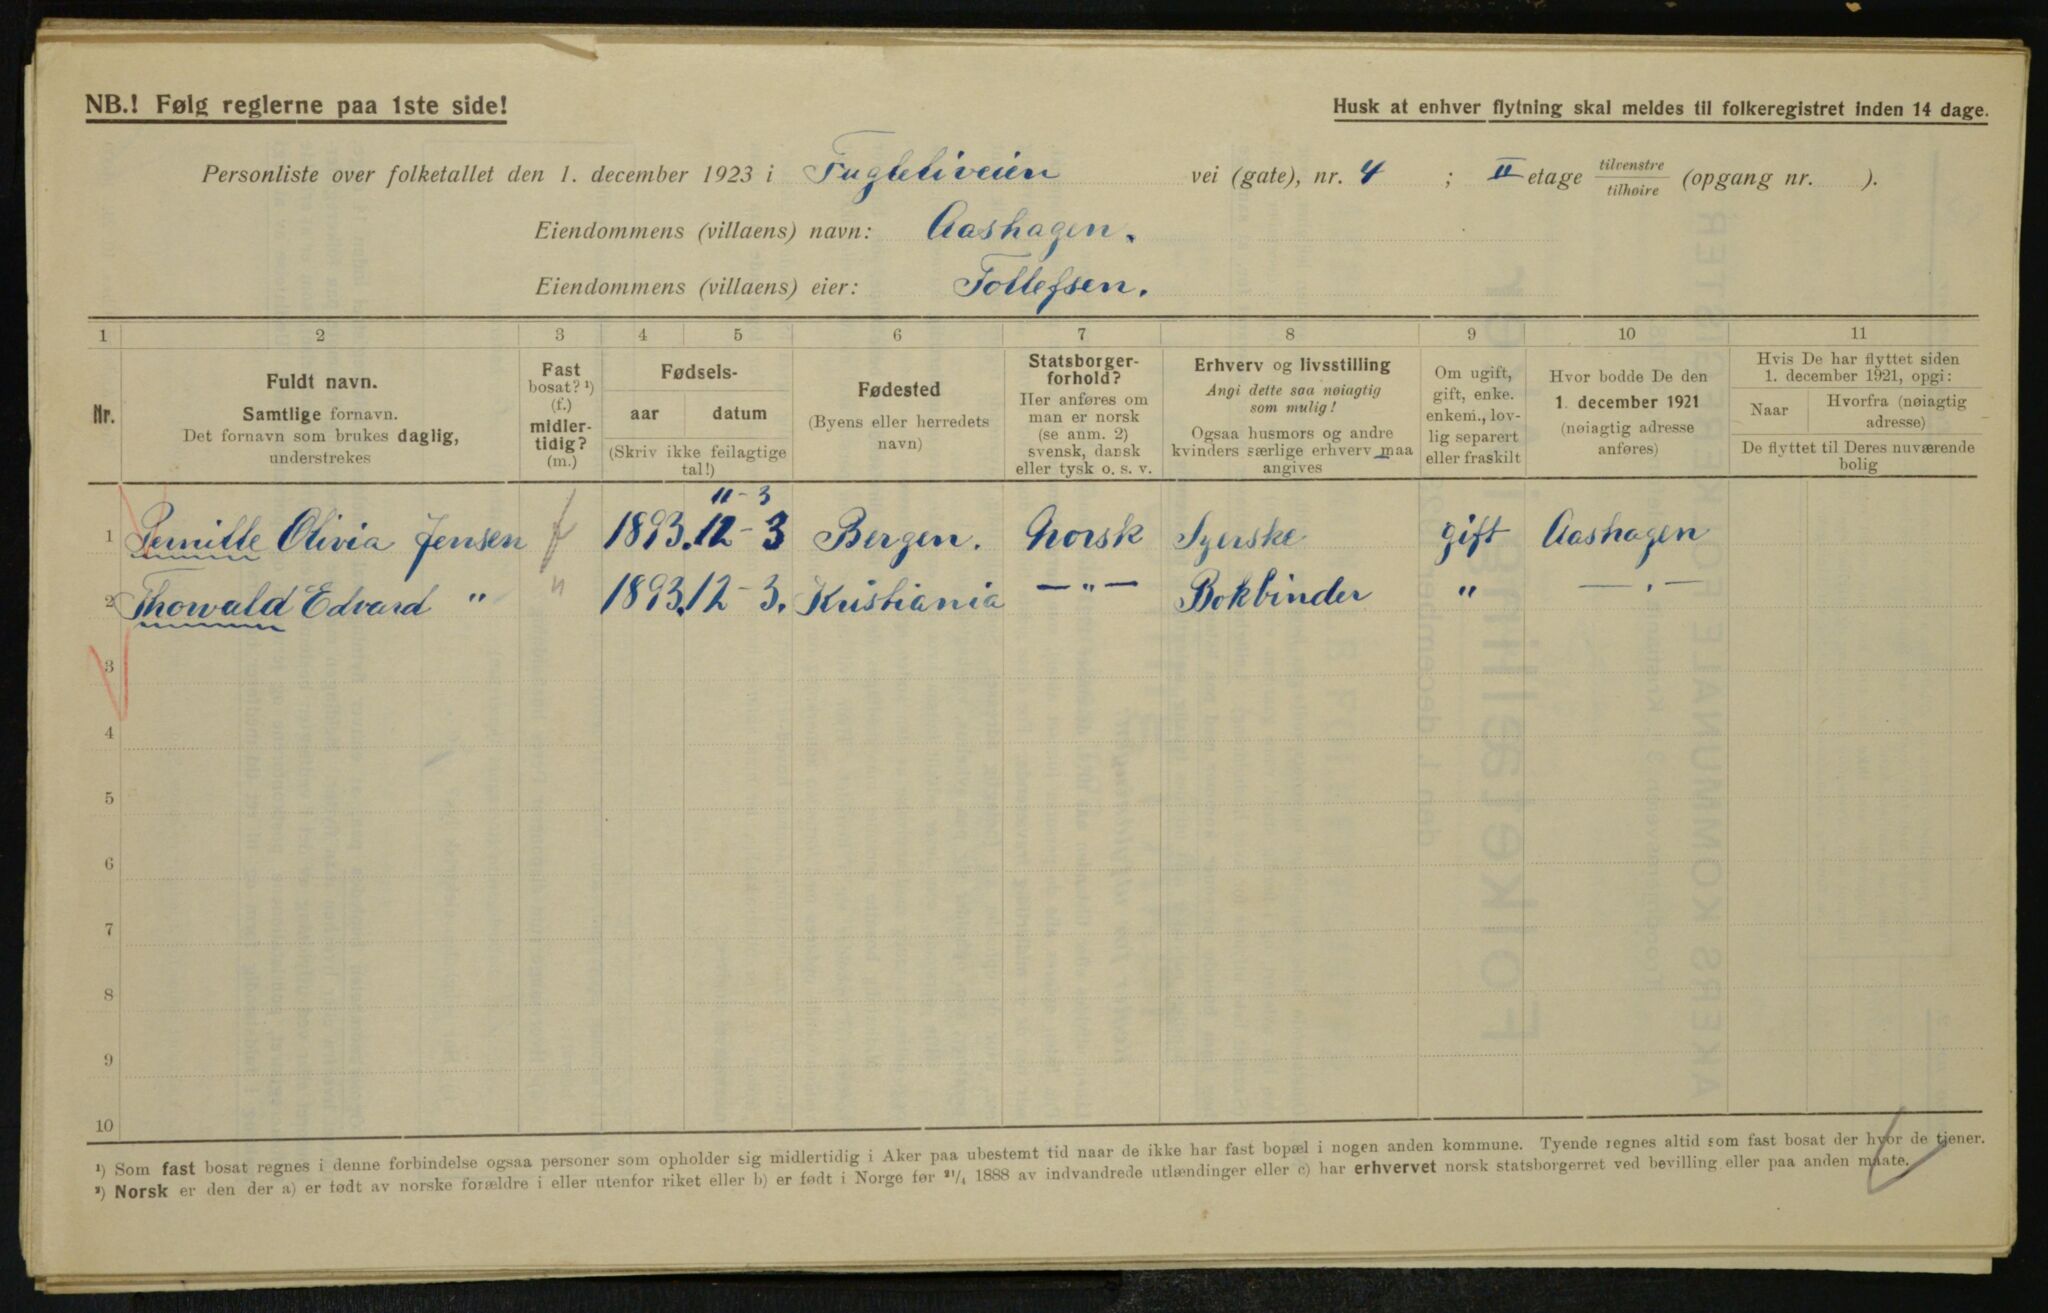 NB.! Følg reglerne paa 1ste side!
Husk at enhver flytning skal meldes til folkeregistret inden 14 dage.
Personliste over folketallet den 1. december 1923 i Fugleliveien vei (gate), nr. 4 ; II etage tilvenstre/tilhøire (opgang nr. ).
Eiendommens (villaens) navn: Aashagen.
Eiendommens (villaens) eier: Tollefsen.
1 2 3 4 5 6 7 8 9 10 11
Nr.
Fuldt navn.
Samtlige fornavn.
Det fornavn som brukes daglig,
understrekes
Fast
bosat? ¹)
(f.)
midler-
tidig?
(m.)
Fødsels-
aar datum
(Skriv ikke feilagtige
tal!)
Fødested
(Byens eller herredets
navn)
Statsborger-
forhold?
Her anføres om
man er norsk
(se anm. 2)
svensk, dansk
eller tysk o. s. v.
Erhverv og livsstilling
Angi dette saa nøiagtig
som mulig!
Ogsaa husmors og andre
kvinders særlige erhverv maa
angives
Om ugift,
gift, enke.
enkem., lov-
lig separert
eller fraskilt
Hvor bodde De den
1. december 1921
(nøiagtig adresse
anføres)
Hvis De har flyttet siden
1. december 1921, opgi:
Naar
Hvorfra (nøiagtig
adresse)
De flyttet til Deres nuværende
bolig
11-3
1 Pernille Olivia Jensen f 1893. 12-3 Bergen. Norsk Syerske gift Aashagen
2 Thorvald Edvard " " 1893. 12-3. Kristiania —"— Bokbinder " —"—
3
4
5
6
7
8
9
10
¹) Som fast bosat regnes i denne forbindelse ogsaa personer som opholder sig midlertidig i Aker paa ubestemt tid naar de ikke har fast bopæl i nogen anden kommune. Tyende regnes altid som fast bosat der hvor de tjener.
²) Norsk er den der a) er født av norske forældre i eller utenfor riket eller b) er født i Norge før ²¹/₄ 1888 av indvandrede utlændinger eller c) har erhvervet norsk statsborgerret ved bevilling eller paa anden maate.